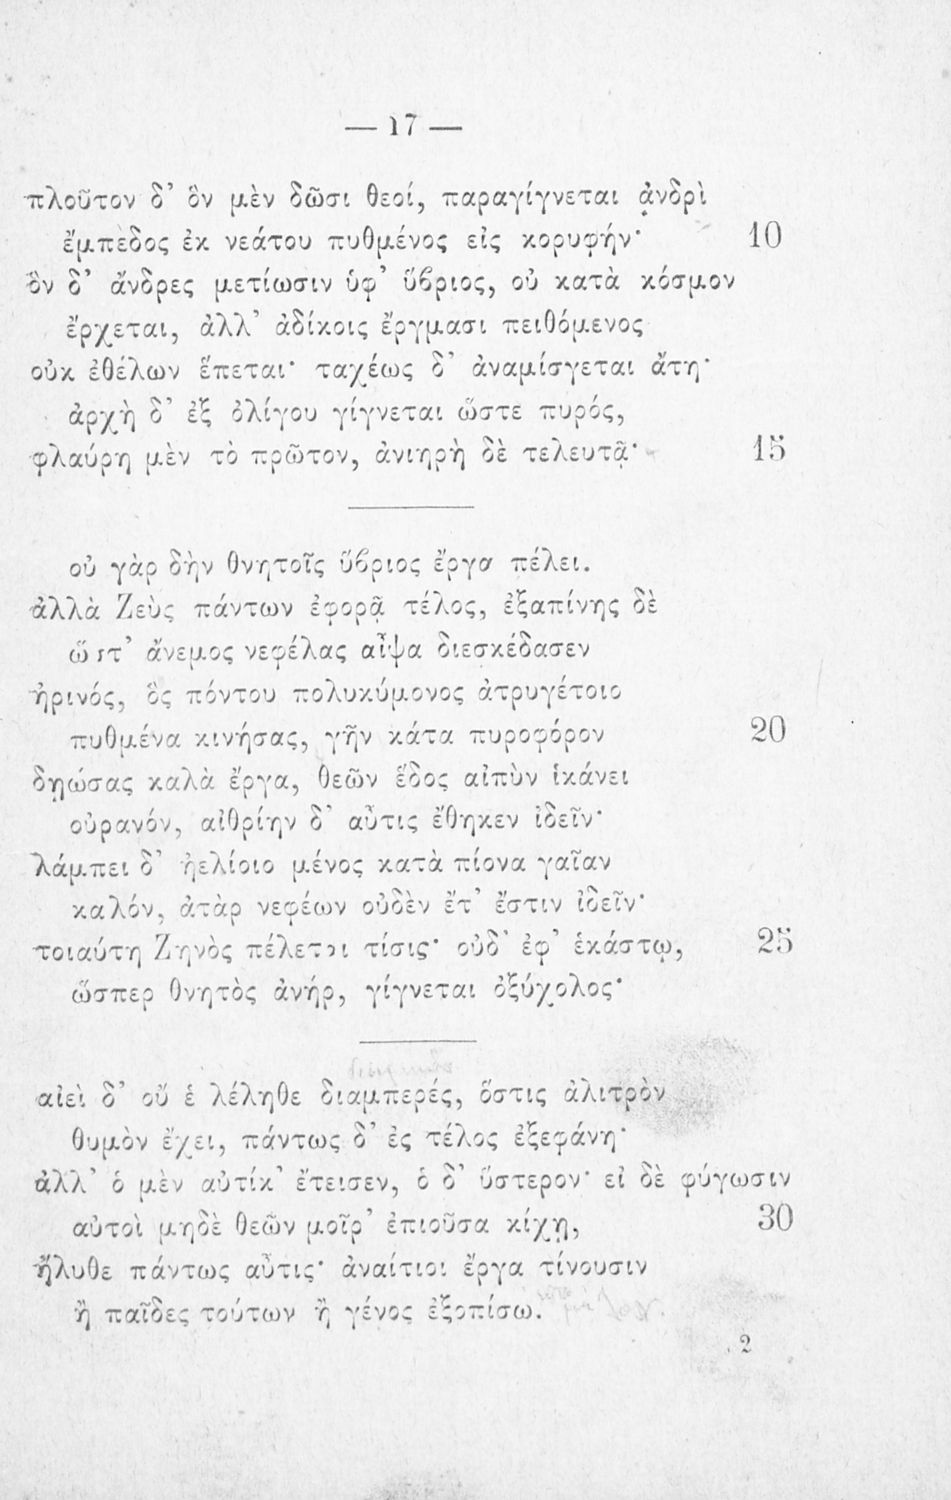 — 17 —
πλοῦτον δ’ ὃν μὲν δῶσι θεοί, παραγίγνεται ἀνδρὶ
ἔμπεδος ἐκ νεάτου πυθμένος εἰς κορυφήν· 10
ὃν δ’ ἄνδρες μετίωσιν ὑφ’ ὕβριος, οὐ κατὰ κόσμον
ἔρχεται, ἀλλ’ ἀδίκοις ἔργμασι πειθόμενος
οὐκ ἐθέλων ἕπεται· ταχέως δ’ ἀναμίσγεται ἄτη·
ἀρχὴ δ’ ἐξ ὀλίγου γίγνεται ὥστε πυρός,
φλαύρη μὲν τὸ πρῶτον, ἀνιηρὴ δὲ τελευτᾷ· 15
οὐ γὰρ δὴν θνητοῖς ὕβριος ἔργα πέλει.
ἀλλὰ Ζεὺς πάντων ἐφορᾷ τέλος, ἐξαπίνης δὲ
ὥστ’ ἄνεμος νεφέλας αἶψα διεσκέδασεν
ἠρινός, ὃς πόντου πολυκύμονος ἀτρυγέτοιο
πυθμένα κινήσας, γῆν κάτα πυροφόρον 20
δῃώσας καλὰ ἔργα, θεῶν ἕδος αἰπὺν ἱκάνει
οὐρανόν, αἰθρίην δ’ αὖτις ἔθηκεν ἰδεῖν·
λάμπει δ’ ἠελίοιο μένος κατὰ πίονα γαῖαν
καλόν, ἀτὰρ νεφέων οὐδὲν ἔτ’ ἔστιν ἰδεῖν·
τοιαύτη Ζηνὸς πέλεται τίσις· οὐδ’ ἐφ’ ἑκάστῳ, 25
ὥσπερ θνητὸς ἀνήρ, γίγνεται ὀξύχολος·
αἰεὶ δ’ οὔ ἑ λέληθε διαμπερές, ὅστις ἀλιτρὸν
θυμὸν ἔχει, πάντως δ’ ἐς τέλος ἐξεφάνη·
ἀλλ’ ὁ μὲν αὐτίκ’ ἔτεισεν, ὁ δ’ ὕστερον· εἰ δὲ φύγωσιν
αὐτοὶ μηδὲ θεῶν μοῖρ’ ἐπιοῦσα κίχῃ, 30
ἤλυθε πάντως αὖτις· ἀναίτιοι ἔργα τίνουσιν
ἢ παῖδες τούτων ἢ γένος ἐξοπίσω.
2